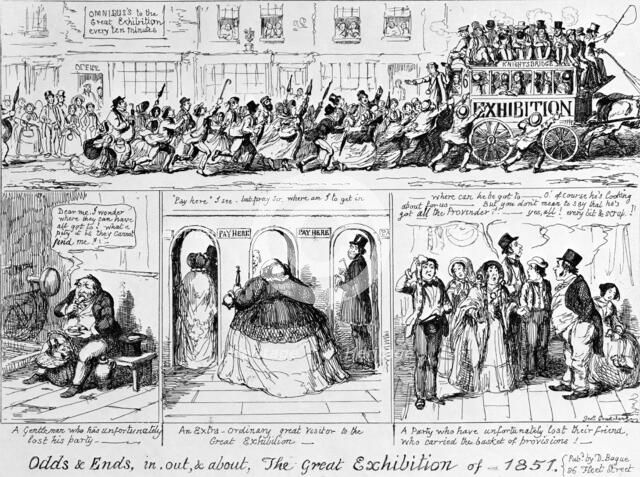 OMNIBUS'S to the
Great Exhibition
every ten minutes
OFFICE
KNIGHTSBRIDGE
EXHIBITION
Dear me. I wonder
where they can have
all got to! what a
pity it is they cannot
find me!!
"Pay here" I see - but pray Sir, where am I to get in
PAY HERE
PAY HERE
PAY HERE
where can he be got to — O' of course he's looking
about for us — But you don't mean to say that he's
got all the Provinder?!! — yes, all! every bit & scrap.!!
A Gentleman who has unfortunately
lost his party —
An Extra-ordinary great visitor to the
Great Exhibition —
Geoe Cruikshank
A Party who have unfortunately lost their friend,
who carried the basket of provisions! —
Odds & Ends, in, out, & about, The Great Exhibition of - 1851.
Pubd by D. Bogue
86 Fleet Street